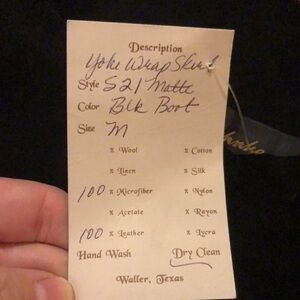 Description
Yoke Wrap Skirt
Style S21 Matte
Color Blk Boot
Size M
% Wool % Cotton
% Linen % Silk
100 % Microfiber % Nylon
% Acetate % Rayon
100 % Leather % Lycra
Hand Wash Dry Clean
Waller, Texas